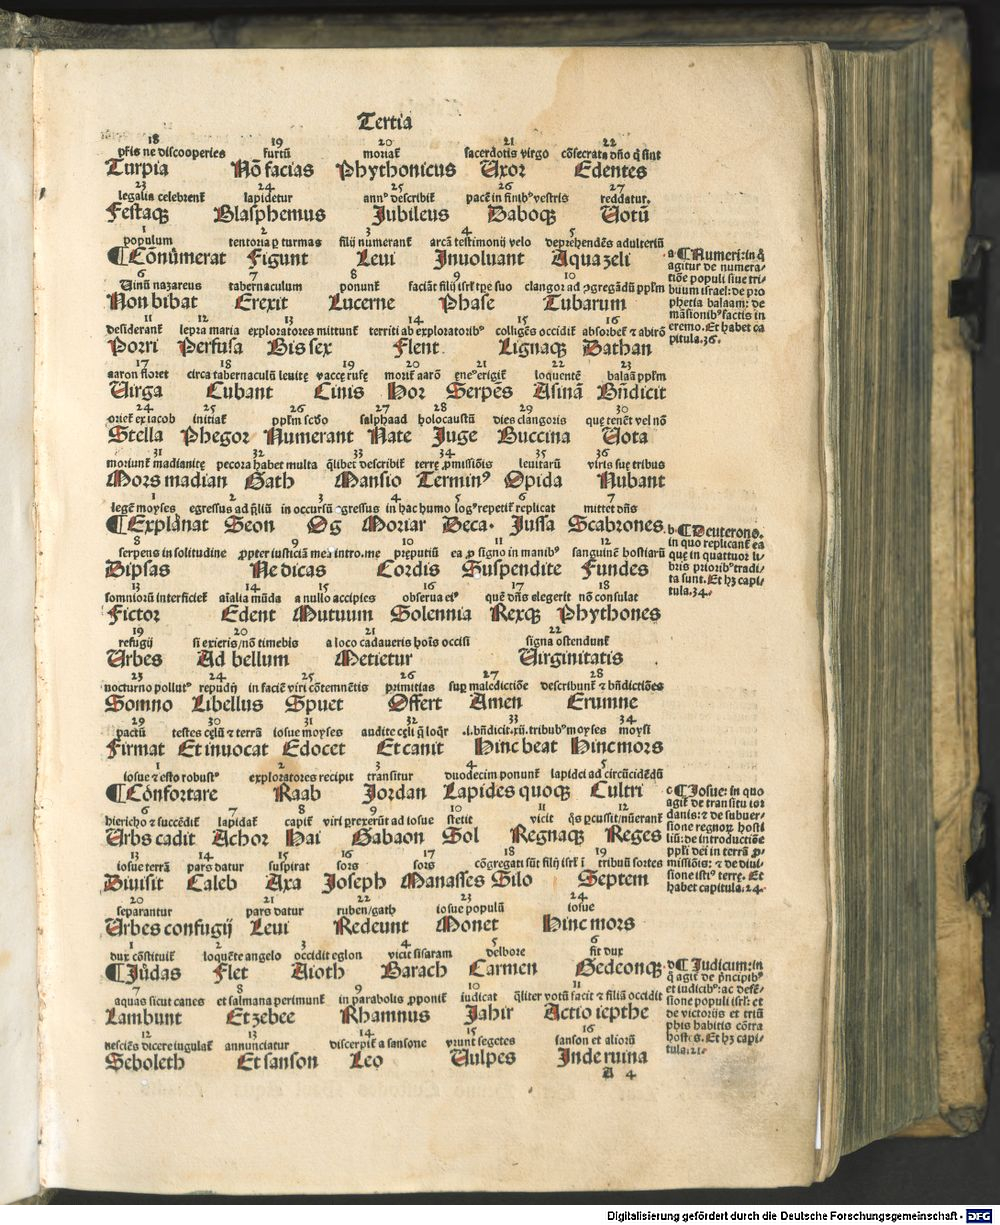 Tertia
18 19 20 21 22
pr̄is ne discooperies furtū moriat᷑ sacerdotis virgo cōsecrata dn̄o q̄ sint
Turpia Nō facias Phythonicus Uxor Edentes
23 24 25 26 27
legalia celebrent᷑ lapidetur annꝰ describit᷑ pacē in finibꝰ vestris reddatur.
Festaqꝫ Blasphemus Jubileus Daboqꝫ Uotū
1 2 3 4 5
populum tentoria ꝑ turmas filij numerant᷑ arcā testimonij velo deprehendēs adulteriū
¶ Cōnūmerat Figunt Leui Inuoluant Aqua zeli
6 7 8 9 10
Uinū nazareus tabernaculum ponunt᷑ faciāt filij isrl̄ tꝑe suo clangor ad ꝯgregādū ppl̄m
Non bibat Erexit Lucerne Phase Tubarum
11 12 13 14 15 16
desiderant᷑ lepra maria exploratores mittunt᷑ territi ab exploratoribꝰ colligēs occidit᷑ absorbet᷑ ⁊ abirō
Porri Perfusa Bis sex Flent. Lignaqꝫ Dathan
17 18 19 20 21 22 23
aaron floret circa tabernaculū leuitę vaccę rufę morit᷑ aarō ęneꝰ erigit᷑ loquentē balaā ppl̄m
Uirga Cubant Cinis Hor Serpēs Asinā Bn̄dicit
24 25 26 27 28 29 30
oriet᷑ ex iacob initiat᷑ ppl̄m scd̄o salphaad holocaustū dies clangoris que tenēt vel nō
Stella Phegor Numerant Nate Juge Buccina Uota
31 32 33 34 35 36
moriunt᷑ madianitę pecora habet multa q̄libet describit᷑ terrę ꝓmissiōis leuitarū viris suę tribus
Mors madian Gath Mansio Terminꝰ Opida Nubant
1 2 3 4 5 6 7
legē moyses egressus ad p̄liū in occursū ꝯgressus in hac humo logꝰ repetit᷑ replicat mittet dn̄s
¶ Explanat Seon Og Moriar Deca. Jussa Scabrones.
8 9 10 11 12
serpens in solitudine ꝓpter iusticiā meā intro.me pręputiū ea ꝓ signo in manibꝰ sanguinē hostiarū
Dipsas Ne dicas Cordis Suspendite Fundes
13 14 15 16 17 18
somniorū interficiet᷑ aīalia mūda a nullo accipies obserua eiꝰ quē dn̄s elegerit nō consulat
Fictor Edent Mutuum Solennia Rexqꝫ Phythones
19 20 21 22
refugij si exieris/nō timebis a loco cadaueris hoīs occisi signa ostendunt᷑
Urbes Ad bellum Metietur Uirginitatis
23 24 25 26 27 28
nocturno pollutꝰ repudij in faciē viri cōtemnētis primitias suꝑ maledictiōe describunt᷑ ⁊ bn̄dictiōes
Somno Libellus Spuet Offert Amen Erumne
29 30 31 32 33 34
pactū testes cęlū ⁊ terrā iosue moyses audite cęli q̄ loqr᷑ .i.bn̄dicit.xii.tribubꝰ moyses moysi
Firmat Et inuocat Edocet Et canit Hinc beat Hinc mors
1 2 3 4 5
iosue ⁊ esto robustꝰ exploratores recipit transitur duodecim ponunt᷑ lapidei ad circūcidēdū
¶ Cōnfortare Raab Jordan Lapides quoqꝫ Cultri
6 7 8 9 10 11 12
hiericho ⁊ succēdit᷑ lapidat᷑ capit᷑ viri ꝓrexerūt ad iosue stetit vicit q̄s ꝑcussit/nūerant᷑
Urbs cadit Achor Hai Gabaon Sol Regnaqꝫ Reges
13 14 15 16 17 18 19
iosue terrā pars datur suspirat sors sors cōgregati sūt filij isrl̄ ī tribuū sortes
Diuisit Caleb Axa Joseph Manasses Silo Septem
20 21 22 23 24
separantur pars datur ruben/gath iosue populū iosue
Urbes confugij Leui Redeunt Monet Hinc mors
1 2 3 4 5 6
dux cōstituit᷑ loquēte angelo occidit eglon vicit sisaram delbore fit dux
¶ Jūdas Flet Aioth Barach Carmen Gedeonqꝫ
7 8 9 10 11
aquas sicut canes et salmana perimunt᷑ in parabolis ꝓponit᷑ iudicat q̄liter votū facit ⁊ filiā occidit
Lambunt Et zebee Rhamnus Jahir Actio iepthe
12 13 14 15 16
nesciēs dicere iugulat᷑ annunciatur discerpit᷑ a sansone vrunt segetes sanson et aliorū
Seboleth Et sanson Leo Uulpes Inde ruina
A 4
a ¶ Numeri: in q̄
agitur de numera-
tiōe populi siue tri-
buum israel: de pro
phetia balaam: de
māsionibꝰ factis in
eremo. Et habet ca
pitula.36.
b ¶ Deuterono.
in quo replicant᷑ ea
quę in quattuor li-
bris prioribꝰ tradi-
ta sunt. Et hꝫ capi-
tula.34.
c ¶ Josue: in quo
agit᷑ de transitu ior
danis: ⁊ de subuer-
sione regnoꝝ hosti
liū: de introductiōe
ppl̄i dei in terrā ꝓ-
missiōis: ⁊ de diui-
sione istiꝰ terrę. Et
habet capitula.24.
d ¶ Judicum: in
q̄ agit᷑ de p̄ncipibꝰ
et iudicibꝰ: ac defē-
sione populi isrl̄: et
de victorijs et triū
phis habitis cōtra
hostes. Et hꝫ capi-
tula.21.
Digitalisierung gefördert durch die Deutsche Forschungsgemeinschaft - DFG